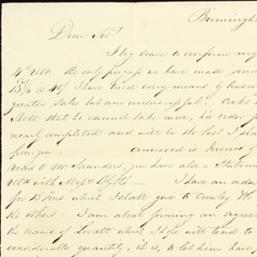 Birmingh
Dear Sir!
I beg leave to confirm my
4th Ulto the only progress we have made since
13/4 & 4/ I have tried every means by lowering
greater sales but am unsuccessful! Cooks
State that he cannot take more, his order
nearly completed and will be the last I shall
from you — annexed is Invoice of
to Mr Saunders, you have also a Statement
Ulto with Messrs Blyth's — I have an order
for 15 Tons which I shall give to Crowley
the others: I am about forming an agree
the name of Lovatt which I hope will tend to
considerable quantity, it is, to let him have,